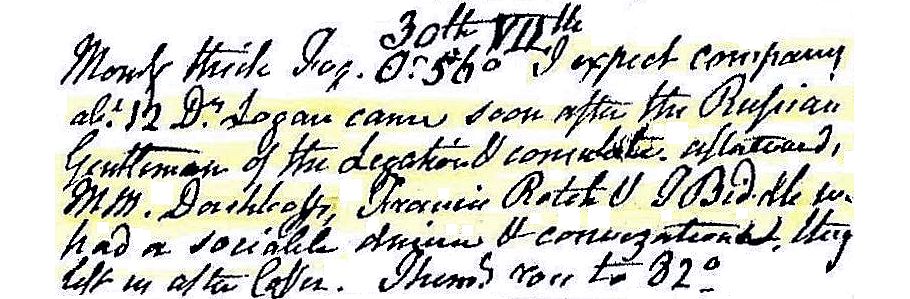 30th VIIth
Mondy thick Fog. Or 56° I expect company
abt 12 Dr Logan came soon after the Russian
Gentleman of the Legation & consulate. afterward,
MM. Daschkoff, Francis Rotch & J Biddle we
had a sociable dinner & conversation, they
left us after Coffee. Thermr rose to 82°